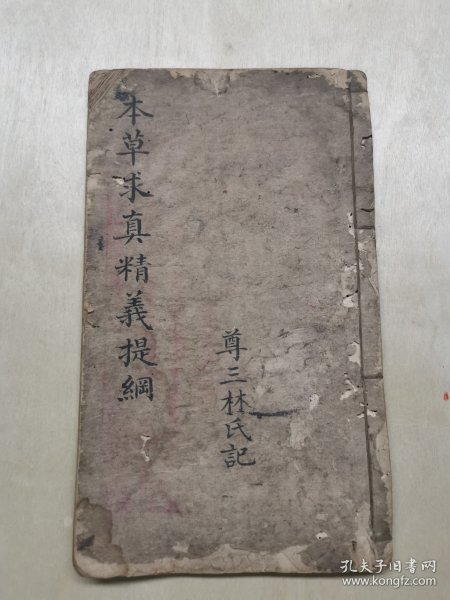 本草求真精義提綱
尊三林氏記
孔夫子旧书网
www.kongfz.com